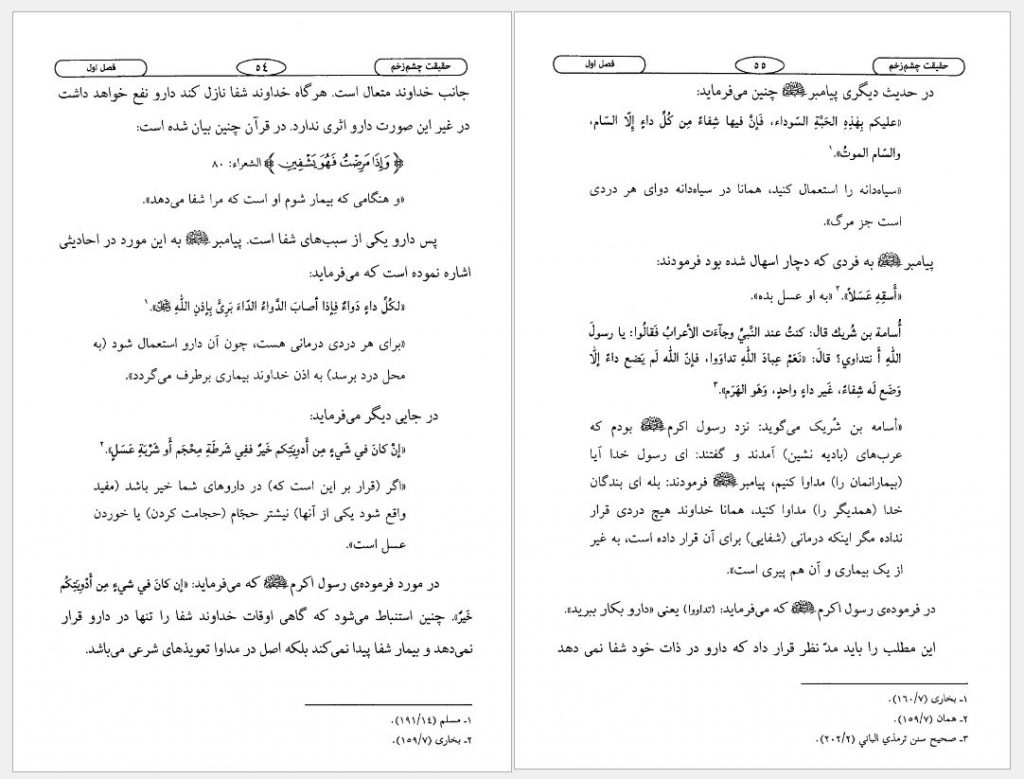 حقیقت چشم‌زخم
٥٤
فصل اول
جانب خداوند متعال است. هرگاه خداوند شفا نازل کند دارو نفع خواهد داشت
در غیر این صورت دارو اثری ندارد. در قرآن چنین بیان شده است:
﴿ وَإِذَا مَرِضْتُ فَهُوَ يَشْفِينِ ﴾ الشعراء: ٨٠
«و هنگامی که بیمار شوم او است که مرا شفا می‌دهد».
پس دارو یکی از سبب‌های شفا است. پیامبر ﷺ به این مورد در احادیثی
اشاره نموده است که می‌فرماید:
«لكُلِّ داءٍ دَواءٌ فَإذا أصابَ الدَّواءُ الدّاءَ بَرِئَ بِإذنِ اللّهِ ﷻ».١
«برای هر دردی درمانی هست، چون آن دارو استعمال شود (به
محل درد برسد) به اذن خداوند بیماری برطرف می‌گردد».
در جایی دیگر می‌فرماید:
«إنْ كانَ في شَيءٍ مِن أَدوِيَتِكم خَيرٌ فَفِي شَرطَةِ مِحْجَمٍ أو شَرْبَةِ عَسَلٍ».٢
«اگر (قرار بر این است که) در داروهای شما خیر باشد (مفید
واقع شود یکی از آنها) نیشتر حجّام (حجامت کردن) یا خوردن
عسل است».
در مورد فرموده‌ی رسول اکرم ﷺ که می‌فرماید: «إن كانَ في شَيءٍ مِن أَدْوِيَتِكُم
خَيرٌ». چنین استنباط می‌شود که گاهی اوقات خداوند شفا را تنها در دارو قرار
نمی‌دهد و بیمار شفا پیدا نمی‌کند بلکه اصل در مداوا تعویذهای شرعی می‌باشد.
١ـ مسلم (١٩١/١٤).
٢ـ بخاری (١٥٩/٧).
حقیقت چشم‌زخم
٥٥
فصل اول
در حدیث دیگری پیامبر ﷺ چنین می‌فرماید:
«عليكم بِهَذِهِ الحَبَّةِ السّوداء، فَإنَّ فيها شِفاءً مِن كُلِّ داءٍ إلّا السّام،
والسّام الموتُ».١
«سیاه‌دانه را استعمال کنید، همانا در سیاه‌دانه دوای هر دردی
است جز مرگ».
پیامبر ﷺ به فردی که دچار اسهال شده بود فرمودند:
«أَسقِهِ عَسَلاً».٢ «به او عسل بده».
أُسامة بن شُريك قال: كنتُ عند النبيِّ وجآءَت الأعرابُ فَقالُوا: يا رسولَ
اللّهِ أ نتداوي؟ قالَ: «نَعَمْ عِبادَ اللّهِ تداوَوا، فإنّ اللّه لَم يَضع داءً إلّا
وَضَع لَه شِفاءً، غَير داءٍ واحدٍ، وَهُو الهَرَم».٣
«أسامه بن شُریک می‌گوید: نزد رسول اکرم ﷺ بودم که
عرب‌های (بادیه نشین) آمدند و گفتند: ای رسول خدا آیا
(بیمارانمان را) مداوا کنیم، پیامبر ﷺ فرمودند: بله ای بندگان
خدا (همدیگر را) مداوا کنید، همانا خداوند هیچ دردی قرار
نداده مگر اینکه درمانی (شفایی) برای آن قرار داده است، به غیر
از یک بیماری و آن هم پیری است».
در فرموده‌ی رسول اکرم ﷺ که می‌فرماید: (تداووا) یعنی «دارو بکار ببرید».
این مطلب را باید مدّ نظر قرار داد که دارو در ذات خود شفا نمی دهد
١ـ بخاری (١٦٠/٧).
٢ـ همان (١٥٩/٧).
٣ـ صحیح سنن ترمذي الباني (٢٠٢/٢).